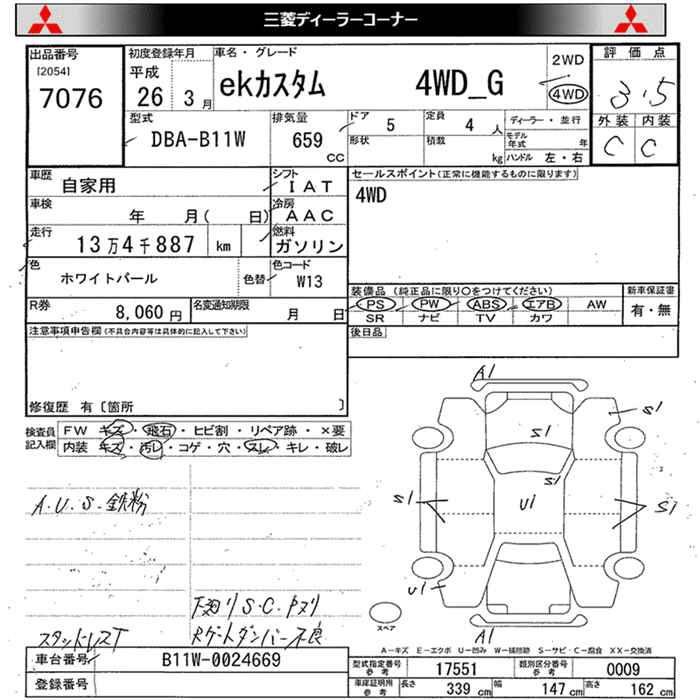 三菱ディーラーコーナー
出品番号 初度登録年月 車名・グレード 2WD 評価点
[2054] 平成
7076 26 3月 ekカスタム 4WD_G 4WD 3.5
型式 排気量 ドア 5 定員 4人 ディーラー・並行 外装 内装
DBA-B11W 659 CC 形状 積載 kg モデル年式 年 C C
ハンドル 左・右
車歴 自家用 シフト IAT セールスポイント(正常に機能するものに限ります)
車検 年 月( 日) 冷房 AAC 4WD
走行 13万4千887 km 燃料 ガソリン
色 ホワイトパール 色替 色コード W13
装備品 (純正品に限り○をつけてください) 新車保証書
R券 8,060円 名変通知期限 月 日 PS PW ABS エアB AW 有・無
SR ナビ TV カワ
注意事項申告欄(不具合内容等は具体的に記入して下さい) 後日品
修復歴 有〔箇所 〕
検査員記入欄 FW キズ・飛石・ヒビ割・リペア跡・×要
内装 キズ・汚レ・コゲ・穴・スレ・キレ・破レ
A1
S1
S1
S1
A.U.S.鉄粉 S1 U1 S1
U1
下廻りS.C.Pヌリ
スタッドレスT Rゲートダンパー不良
スペア
A1
A-キズ E-エクボ U-凹み W-補修跡 S-サビ・C-腐食 XX-交換済
車台番号 B11W-0024669 型式指定番号 参考 17551 類別区分番号 参考 0009
登録番号 車庫証明用 参考 長さ 339 cm 幅 147 cm 高さ 162 cm